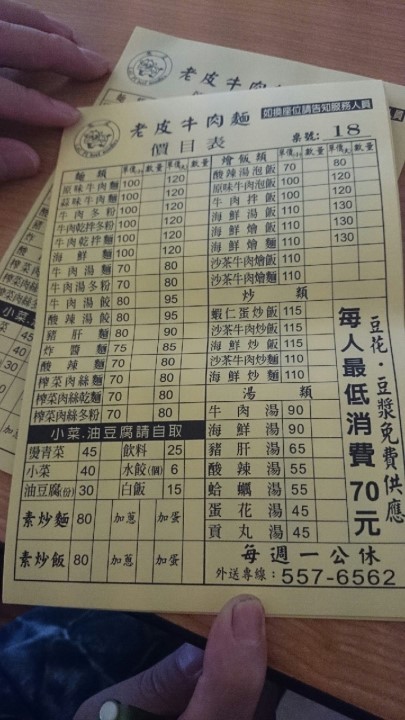 老皮牛肉麵
如換座位請告知服務人員
老皮牛肉麵
價目表
桌號: 18
麵類 單價小 數量 單價大 數量
原味牛肉麵 100 120
蒜味牛肉麵 100 120
牛肉冬粉 100 120
牛肉乾拌冬粉 100 120
牛肉乾拌麵 100 120
海鮮麵 100 120
牛肉湯麵 70 80
牛肉湯冬粉 70 80
牛肉湯餃 80 95
酸辣湯餃 80 95
豬肝麵 80 90
炸醬麵 75 85
酸辣麵 70 80
榨菜肉絲麵 70 80
榨菜肉絲乾麵 70 80
榨菜肉絲冬粉 70 80
小菜.油豆腐請自取
燙青菜 45 飲料 25
小菜 40 水餃(個) 6
油豆腐(份) 30 白飯 15
素炒麵 80 加蔥 加蛋
素炒飯 80 加蔥 加蛋
燴飯類 單價小 數量 單價大 數量
酸辣湯泡飯 70 80
原味牛肉泡飯 100 120
牛肉拌飯 100 120
海鮮湯飯 110 130
海鮮燴飯 110 130
海鮮燴麵 110 130
沙茶牛肉燴飯 110
沙茶牛肉燴麵 110
炒類
蝦仁蛋炒飯 115
沙茶牛肉炒飯 115
海鮮炒飯 115
沙茶牛肉炒麵 110
海鮮炒麵 110
湯類
牛肉湯 90
海鮮湯 90
豬肝湯 65
酸辣湯 55
蛤蠣湯 55
蛋花湯 45
貢丸湯 45
豆花·豆漿免費供應
每人最低消費70元
每週一公休
外送專線: 557-6562